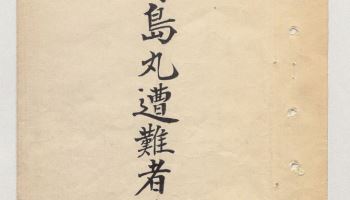 島丸遭難者